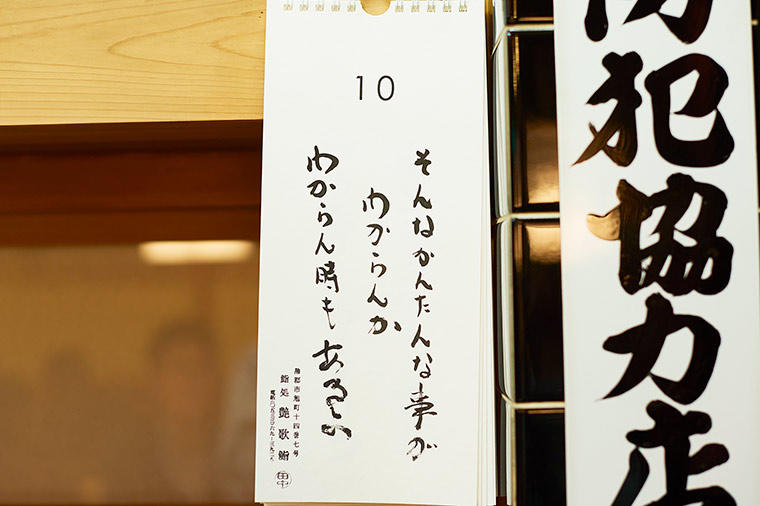 10
そんなかんたんな事が
わからんか
わからん時もあるわい
蒲郡市旭町十四番七号
鮨処 艶歌鮨
田中
防犯協力店